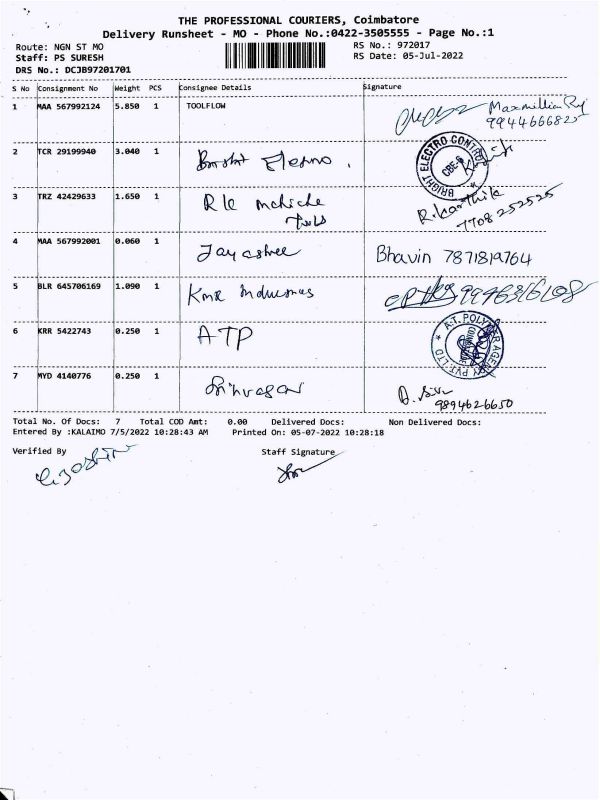 THE PROFESSIONAL COURIERS, Coimbatore
Delivery Runsheet - MO - Phone No.:0422-3505555 - Page No.:1
Route: NGN ST MO
RS No.: 972017
Staff: PS SURESH
RS Date: 05-Jul-2022
DRS No.: DCJB97201701
S No Consignment No Weight PCS Consignee Details Signature
1 MAA 567992124 5.850 1 TOOLFLOW Maxmillian
9944666825
2 TCR 29199940 3.040 1 BRIGHT ELECTRO CONTROL CBE-6
3 TRZ 42429633 1.650 1 RK Tools R.Karthik
7708 252525
4 MAA 567992001 0.060 1 Jayashree Bhavin 7871819764
5 BLR 645706169 1.090 1 KMR
6 KRR 5422743 0.250 1 ATP A.T. POLYMER AGENCY PVT. LTD
7 MYD 4140776 0.250 1 Srinivasan
9894626650
Total No. Of Docs: 7 Total COD Amt: 0.00 Delivered Docs: Non Delivered Docs:
Entered By :KALAIMO 7/5/2022 10:28:43 AM Printed On: 05-07-2022 10:28:18
Verified By Staff Signature